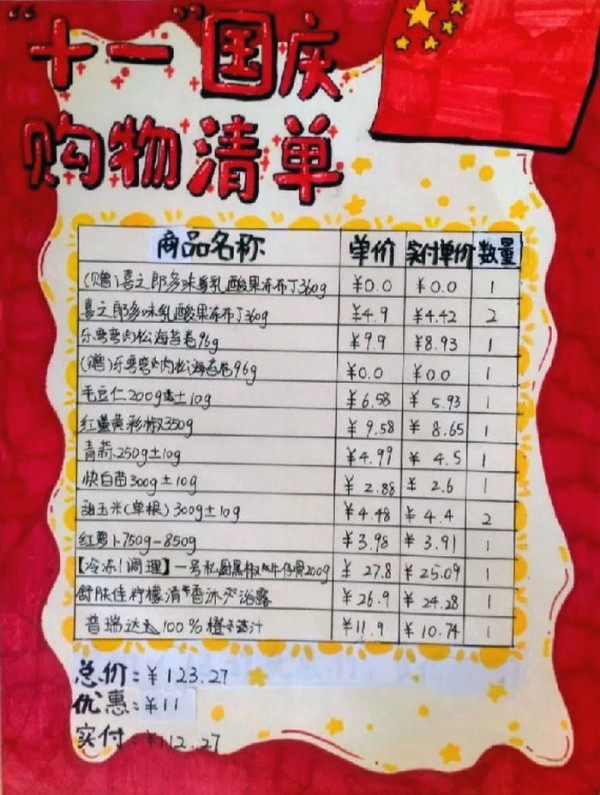 “十一”国庆
购物清单
商品名称 单价 实付单价 数量
(赠)喜之郎多味乳酸果冻布丁360g ¥0.0 ¥0.0 1
喜之郎多味乳酸果冻布丁360g ¥4.9 ¥4.42 2
乐弯弯肉松海苔卷96g ¥9.9 ¥8.93 1
(赠)乐弯弯肉松海苔卷96g ¥0.0 ¥0.0 1
毛豆仁200g±10g ¥6.58 ¥5.93 1
红黄彩椒350g ¥9.58 ¥8.65 1
青蒜250g±10g ¥4.99 ¥4.5 1
快白苗300g±10g ¥2.88 ¥2.6 1
甜玉米(单根)300g±10g ¥4.48 ¥4.4 2
红萝卜750g-850g ¥3.98 ¥3.91 1
【冷冻/调理】一号私厨黑椒牛仔骨200g ¥27.8 ¥25.09 1
舒肤佳柠檬清香沐浴露 ¥26.9 ¥24.28 1
普瑞达100%橙子汁 ¥11.9 ¥10.74 1
总价:¥123.27
优惠:¥11
实付:¥112.27